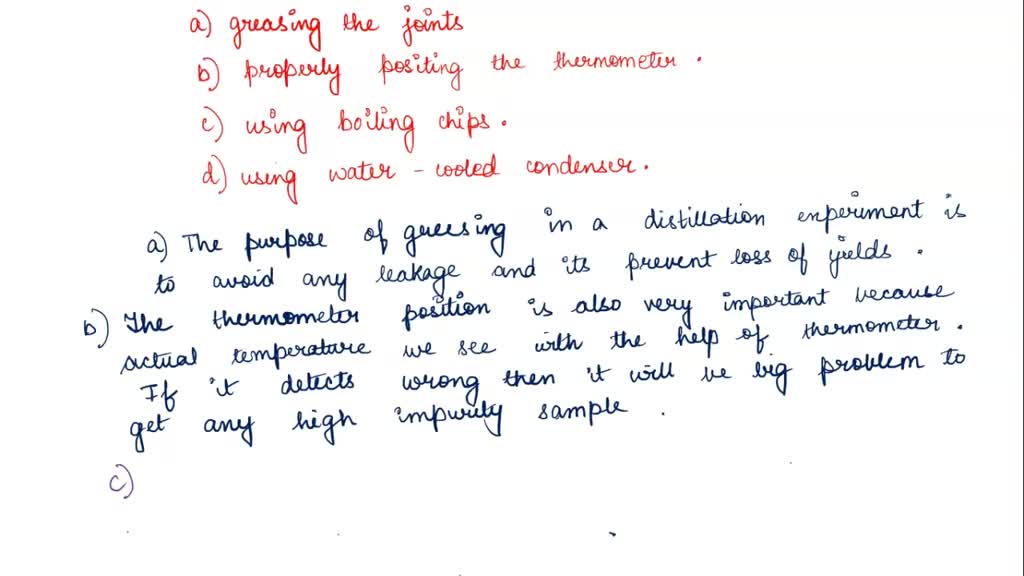 a) greasing the joints
b) properly positing the thermometer .
c) using boiling chips .
d) using water - cooled condenser .
a) The purpose of greesing in a distillation experiment is
to avoid any leakage and its prevent loss of yields .
b) The thermometer position is also very important because
actual temperature we see with the help of thermometer .
If it detects wrong then it will be big problem to
get any high impurity sample .
c)